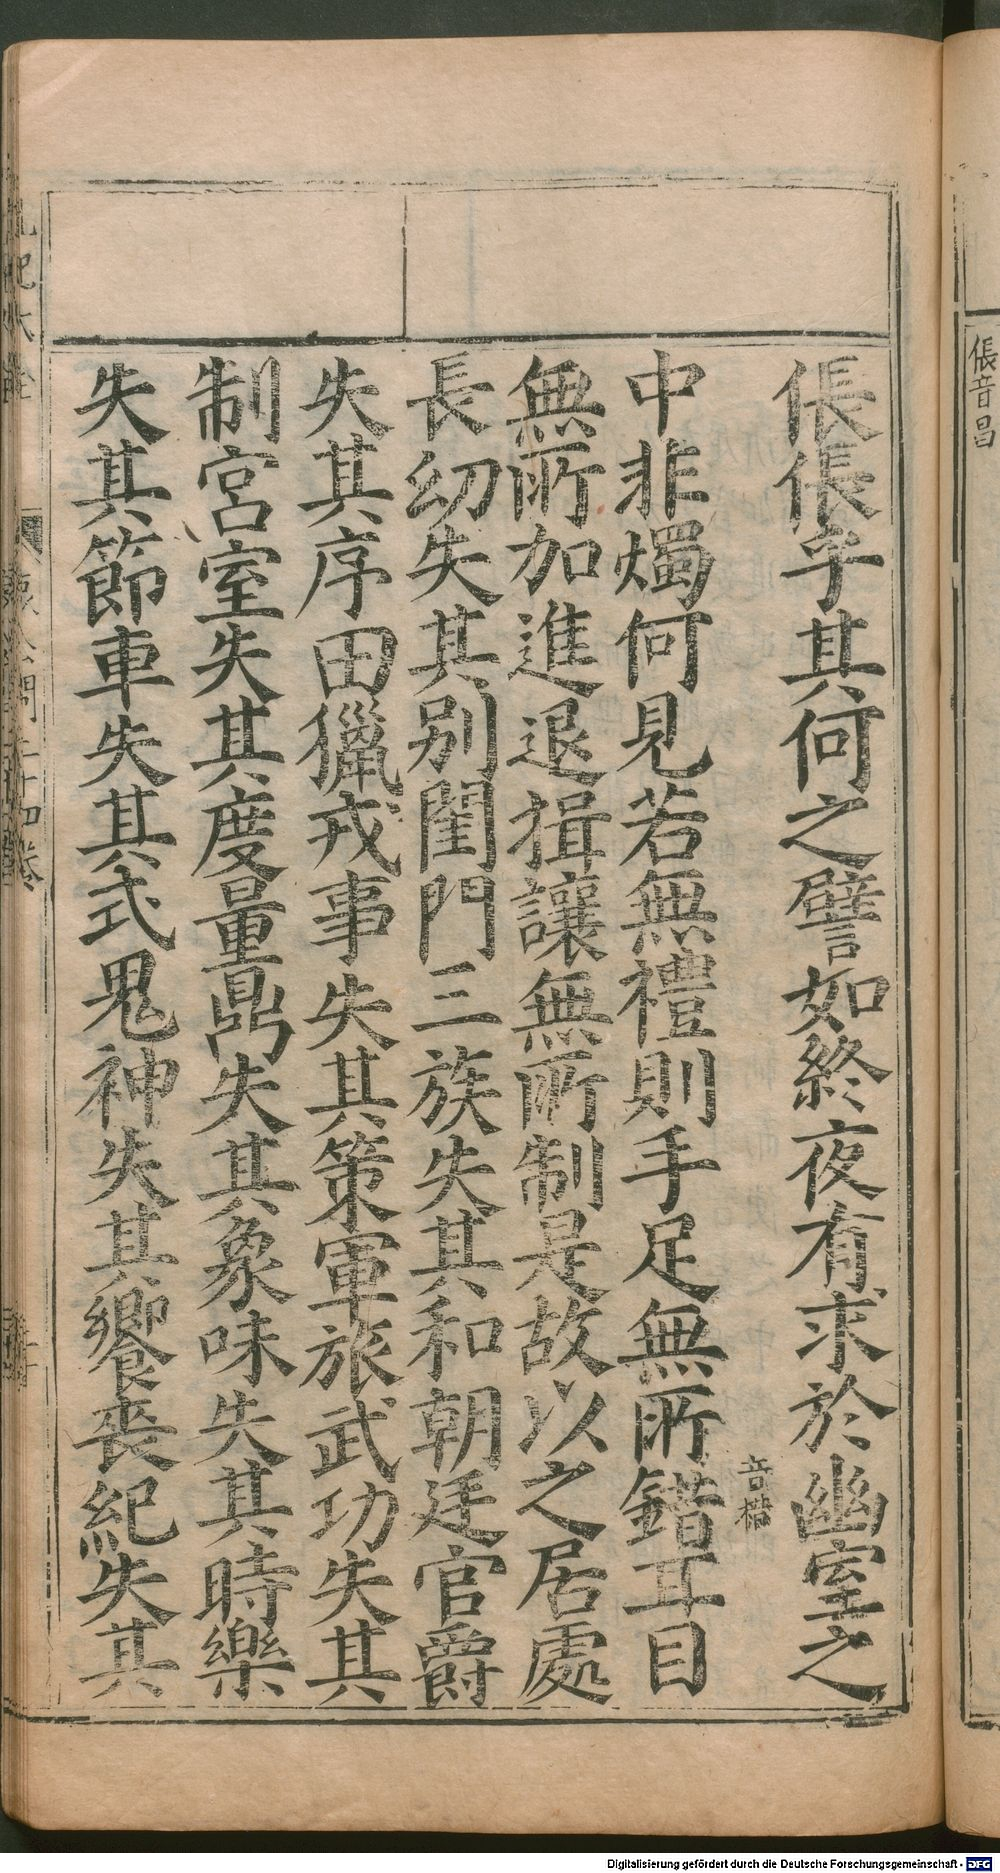 倀音昌
倀倀乎其何之譬如終夜有求於幽室之
中非燭何見若無禮則手足無所錯耳目
音措
無所加進退揖讓無所制是故以之居處
長幼失其别閨門三族失其和朝廷官爵
失其序田獵戎事失其策軍旅武功失其
制宮室失其度量鼎失其象味失其時樂
失其節車失其式鬼神失其饗喪紀失其
Digitalisierung gefördert durch die Deutsche Forschungsgemeinschaft - DFG